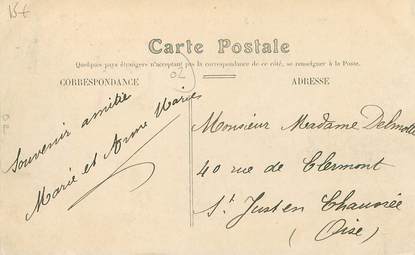 15€
Carte Postale
Quelques pays étrangers n'acceptant pas la correspondance de ce côté, se renseigner à la Poste.
CORRESPONDANCE
ADRESSE
Souvenir amitié
Marie et Anne Marie
Monsieur Madame Delmotte
40 rue de Clermont
St Just en Chaussée
(Oise)